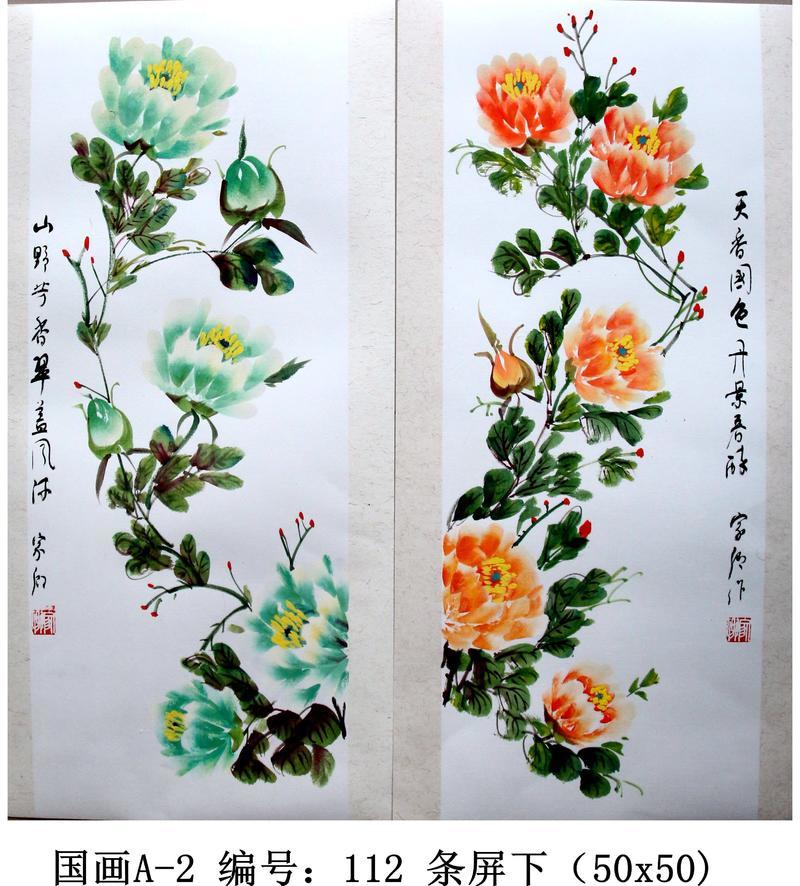 山野芳香翠盖风流 家乡
天香国色丹景春醉 家乡作
国画A-2 编号：112 条屏下（50x50）